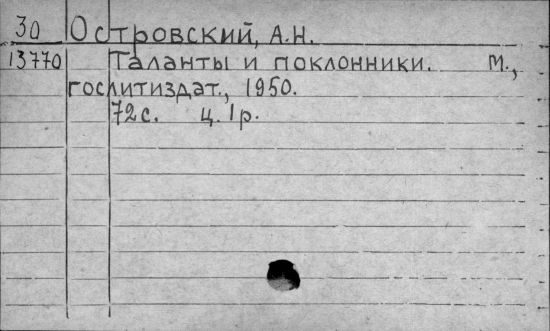 30 Островский, А.Н.
13770 Таланты и поклонники. М.,
гослитиздат., 1950.
72с. ц. 1р.